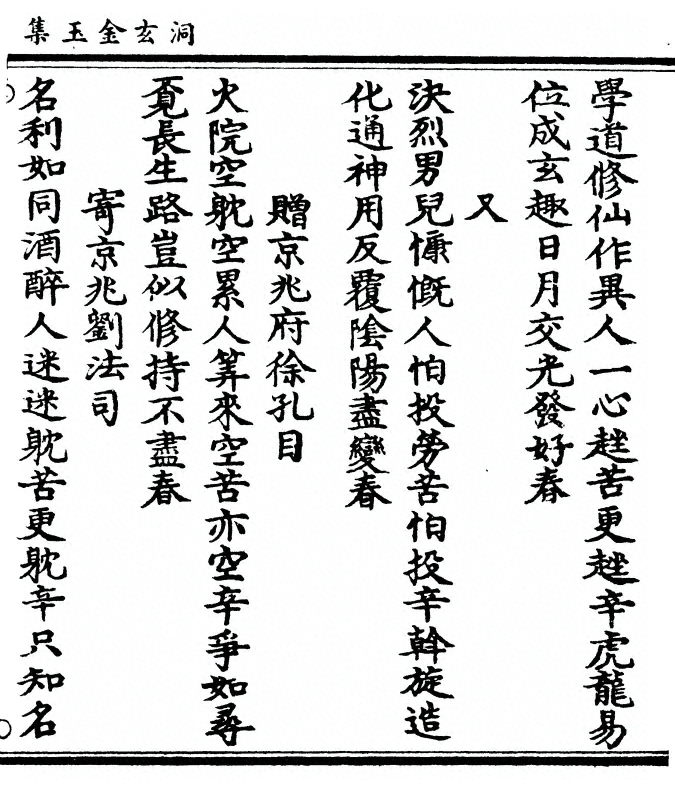 洞玄金玉集
學道修仙作異人一心趓苦更趓辛虎龍易
位成玄趣日月交光發好春
又
決烈男兒慷慨人怕投勞苦怕投辛斡旋造
化通神用反覆陰陽盡變春
贈京兆府徐孔目
火院空躭空累人筭來空苦亦空辛爭如尋
覓長生路豈似修持不盡春
寄京兆劉法司
名利如同酒醉人迷迷躭苦更躭辛只知名